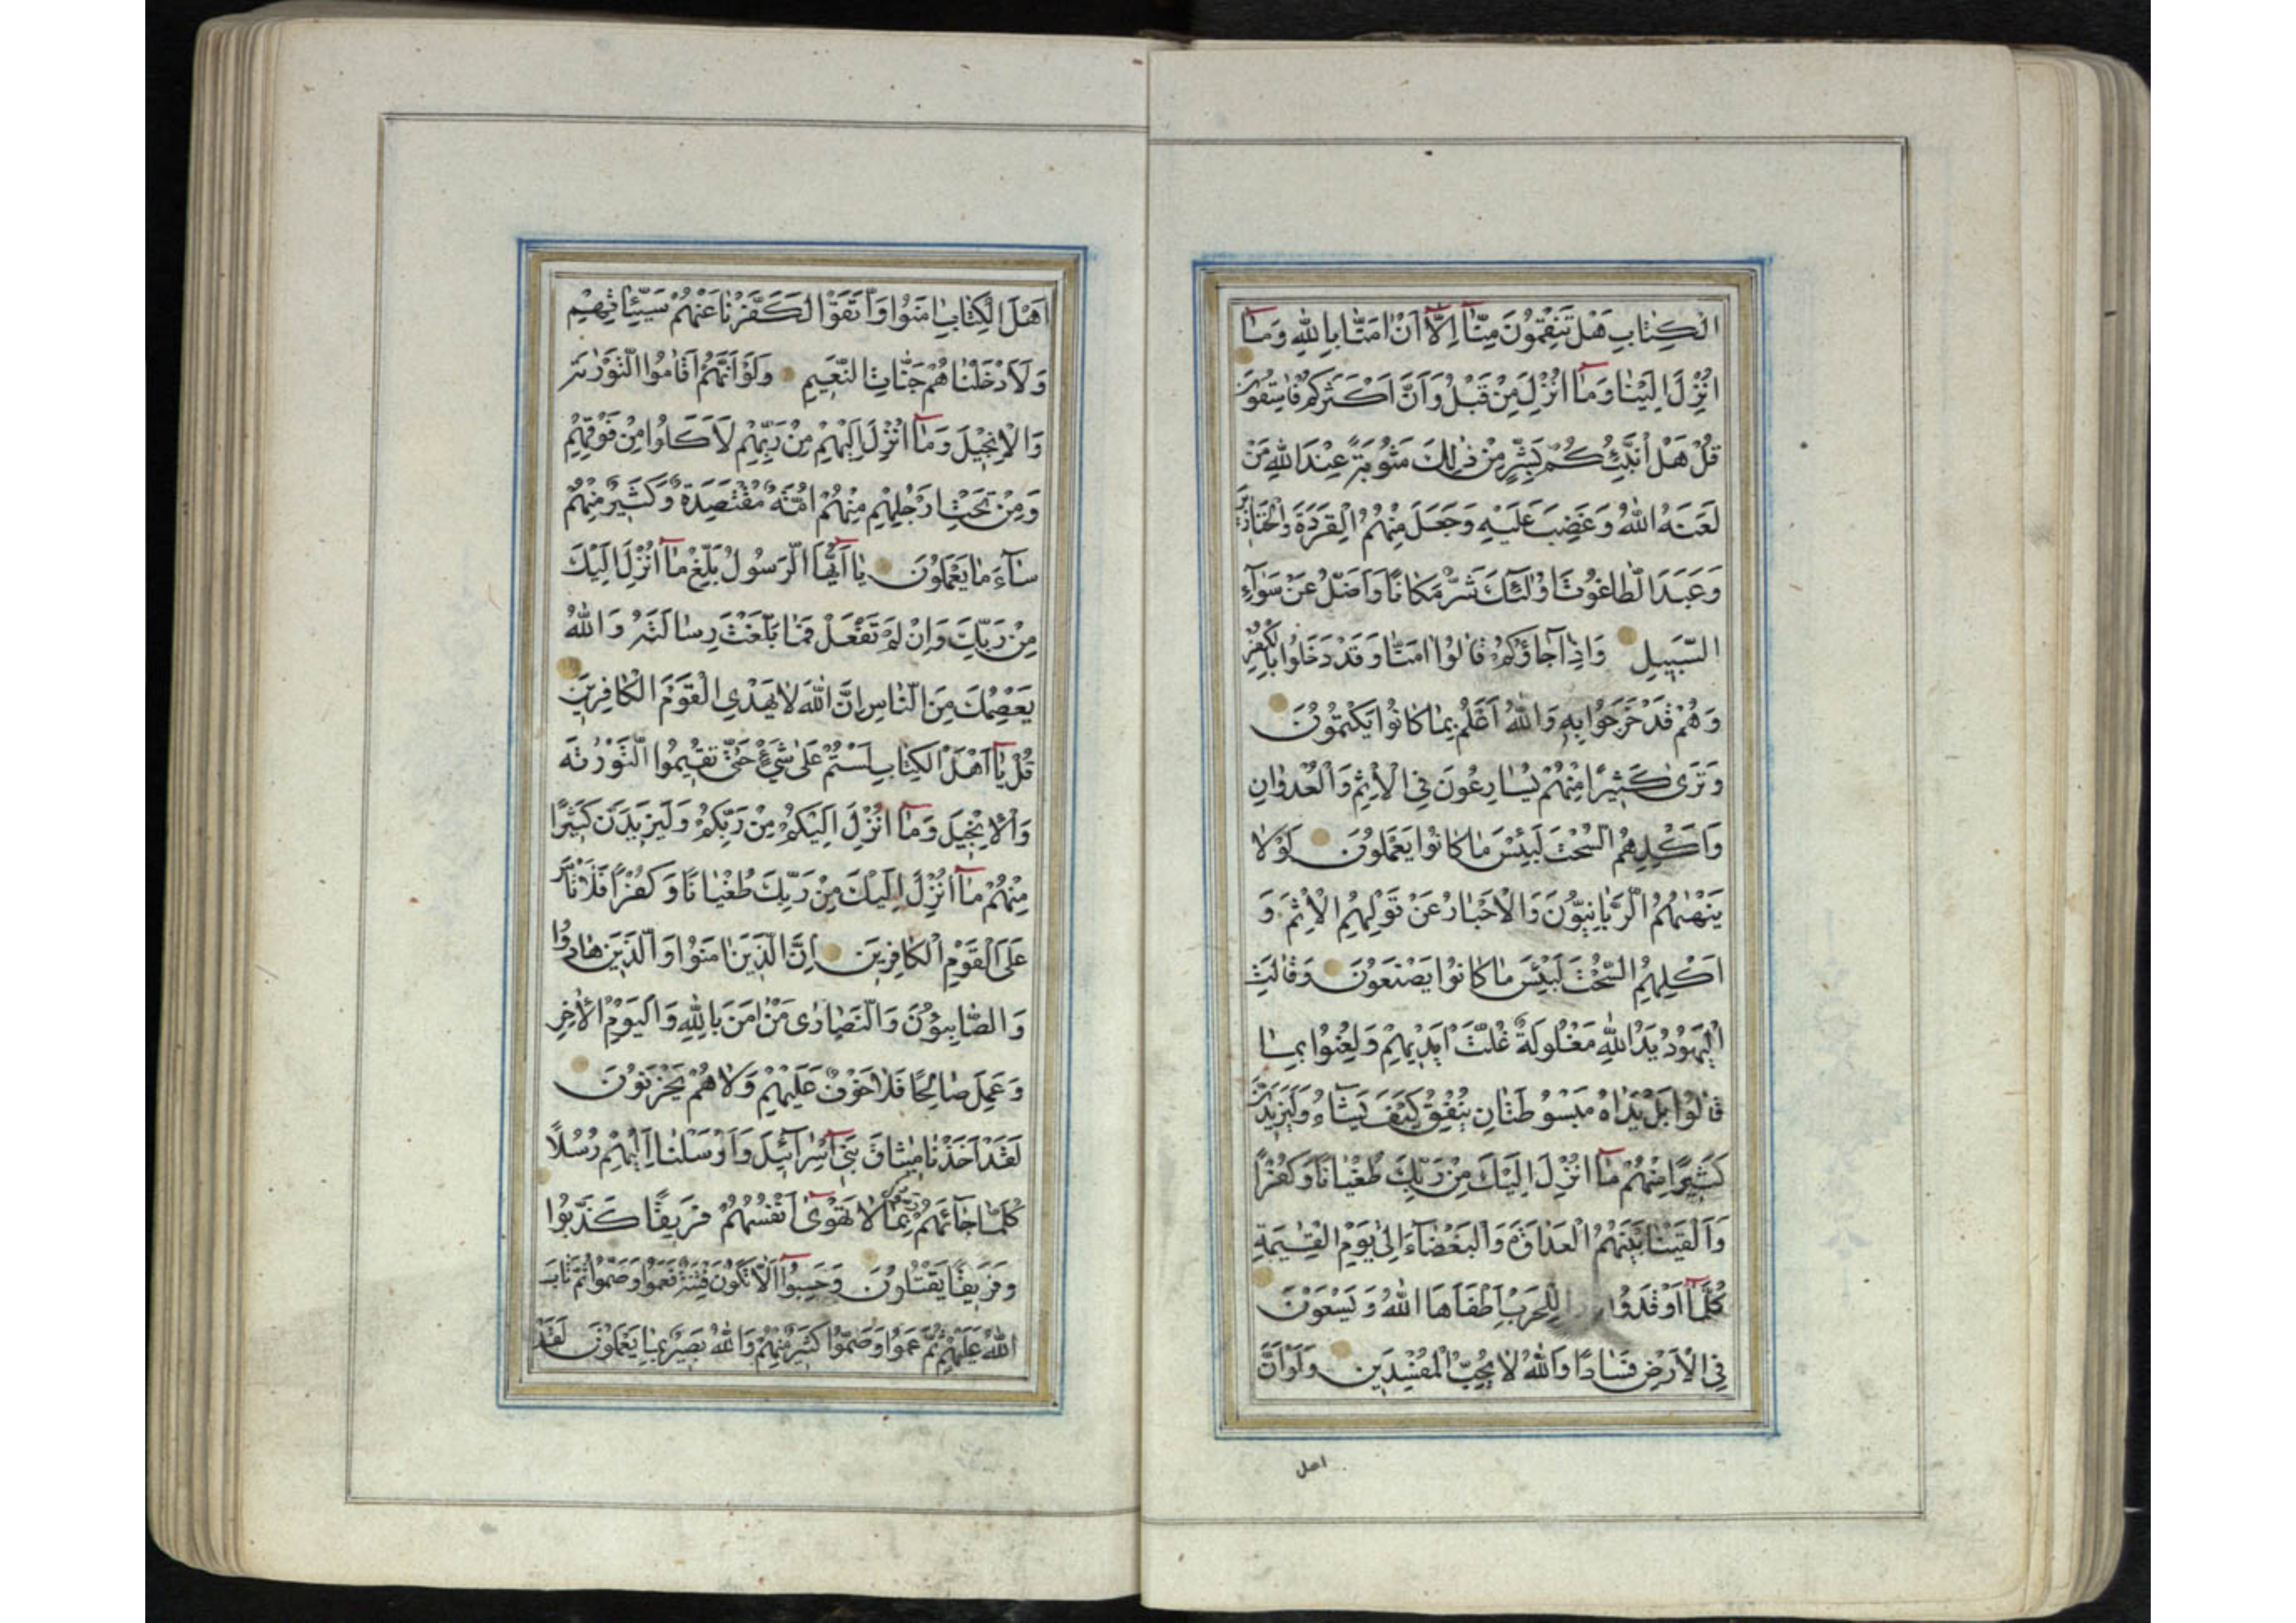 الْكِتَابِ هَلْ تَنْقِمُونَ مِنَّآ اِلَّآ اَنْ اٰمَنَّا بِاللّٰهِ وَمَآ
اُنْزِلَ اِلَيْنَا وَمَآ اُنْزِلَ مِنْ قَبْلُ وَاَنَّ اَكْثَرَكُمْ فَاسِقُونَ
قُلْ هَلْ اُنَبِّئُكُمْ بِشَرٍّ مِنْ ذٰلِكَ مَثُوبَةً عِنْدَ اللّٰهِ مَنْ
لَعَنَهُ اللّٰهُ وَغَضِبَ عَلَيْهِ وَجَعَلَ مِنْهُمُ الْقِرَدَةَ وَالْخَنَازِيرَ
وَعَبَدَ الطَّاغُوتَ اُولٰئِكَ شَرٌّ مَكَانًا وَاَضَلُّ عَنْ سَوَآءِ
السَّبِيلِ وَاِذَا جَآؤُكُمْ قَالُوا اٰمَنَّا وَقَدْ دَخَلُوا بِالْكُفْرِ
وَهُمْ قَدْ خَرَجُوا بِهِ وَاللّٰهُ اَعْلَمُ بِمَا كَانُوا يَكْتُمُونَ
وَتَرٰى كَثِيرًا مِنْهُمْ يُسَارِعُونَ فِي الْاِثْمِ وَالْعُدْوَانِ
وَاَكْلِهِمُ السُّحْتَ لَبِئْسَ مَا كَانُوا يَعْمَلُونَ لَوْلَا
يَنْهٰيهُمُ الرَّبَّانِيُّونَ وَالْاَحْبَارُ عَنْ قَوْلِهِمُ الْاِثْمَ وَ
اَكْلِهِمُ السُّحْتَ لَبِئْسَ مَا كَانُوا يَصْنَعُونَ وَقَالَتِ
الْيَهُودُ يَدُ اللّٰهِ مَغْلُولَةٌ غُلَّتْ اَيْدِيهِمْ وَلُعِنُوا بِمَا
قَالُوا بَلْ يَدَاهُ مَبْسُوطَتَانِ يُنْفِقُ كَيْفَ يَشَآءُ وَلَيَزِيدَنَّ
كَثِيرًا مِنْهُمْ مَآ اُنْزِلَ اِلَيْكَ مِنْ رَبِّكَ طُغْيَانًا وَكُفْرًا
وَاَلْقَيْنَا بَيْنَهُمُ الْعَدَاوَةَ وَالْبَغْضَآءَ اِلٰى يَوْمِ الْقِيٰمَةِ
كُلَّمَآ اَوْقَدُوا لِلْحَرْبِ اَطْفَاَهَا اللّٰهُ وَيَسْعَوْنَ
فِي الْاَرْضِ فَسَادًا وَاللّٰهُ لَا يُحِبُّ الْمُفْسِدِينَ وَلَوْ اَنَّ
اهل
اَهْلَ الْكِتَابِ اٰمَنُوا وَاتَّقَوْا لَكَفَّرْنَا عَنْهُمْ سَيِّئَاتِهِمْ
وَلَاَدْخَلْنَاهُمْ جَنَّاتِ النَّعِيمِ وَلَوْ اَنَّهُمْ اَقَامُوا التَّوْرٰيةَ
وَالْاِنْجِيلَ وَمَآ اُنْزِلَ اِلَيْهِمْ مِنْ رَبِّهِمْ لَاَكَلُوا مِنْ فَوْقِهِمْ
وَمِنْ تَحْتِ اَرْجُلِهِمْ مِنْهُمْ اُمَّةٌ مُقْتَصِدَةٌ وَكَثِيرٌ مِنْهُمْ
سَآءَ مَا يَعْمَلُونَ يَآ اَيُّهَا الرَّسُولُ بَلِّغْ مَآ اُنْزِلَ اِلَيْكَ
مِنْ رَبِّكَ وَاِنْ لَمْ تَفْعَلْ فَمَا بَلَّغْتَ رِسَالَتَهُ وَاللّٰهُ
يَعْصِمُكَ مِنَ النَّاسِ اِنَّ اللّٰهَ لَا يَهْدِي الْقَوْمَ الْكَافِرِينَ
قُلْ يَآ اَهْلَ الْكِتَابِ لَسْتُمْ عَلٰى شَيْءٍ حَتّٰى تُقِيمُوا التَّوْرٰيةَ
وَالْاِنْجِيلَ وَمَآ اُنْزِلَ اِلَيْكُمْ مِنْ رَبِّكُمْ وَلَيَزِيدَنَّ كَثِيرًا
مِنْهُمْ مَآ اُنْزِلَ اِلَيْكَ مِنْ رَبِّكَ طُغْيَانًا وَكُفْرًا فَلَا تَاْسَ
عَلَى الْقَوْمِ الْكَافِرِينَ اِنَّ الَّذِينَ اٰمَنُوا وَالَّذِينَ هَادُوا
وَالصَّابِئُونَ وَالنَّصَارٰى مَنْ اٰمَنَ بِاللّٰهِ وَالْيَوْمِ الْاٰخِرِ
وَعَمِلَ صَالِحًا فَلَا خَوْفٌ عَلَيْهِمْ وَلَا هُمْ يَحْزَنُونَ
لَقَدْ اَخَذْنَا مِيثَاقَ بَنِيٓ اِسْرَآئِيلَ وَاَرْسَلْنَا اِلَيْهِمْ رُسُلًا
كُلَّمَا جَآئَهُمْ رَسُولٌ بِمَا لَا تَهْوٰىٓ اَنْفُسُهُمْ فَرِيقًا كَذَّبُوا
وَفَرِيقًا يَقْتُلُونَ وَحَسِبُوٓا اَلَّا تَكُونَ فِتْنَةٌ فَعَمُوا وَصَمُّوا ثُمَّ تَابَ
اللّٰهُ عَلَيْهِمْ ثُمَّ عَمُوا وَصَمُّوا كَثِيرٌ مِنْهُمْ وَاللّٰهُ بَصِيرٌ بِمَا يَعْمَلُونَ لَقَدْ